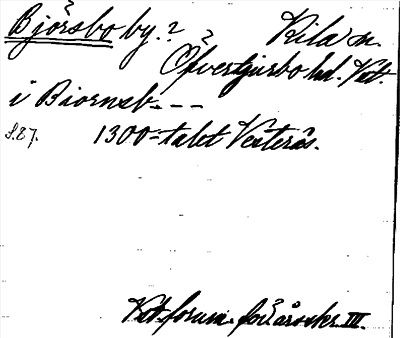 Björsbo by.? Kila sn.
Öfvertjurbo hd. Vst.
i Biornsb---
S.27. 1300-talet Vesterås.
Vst. forum. för:s årsskr. III.